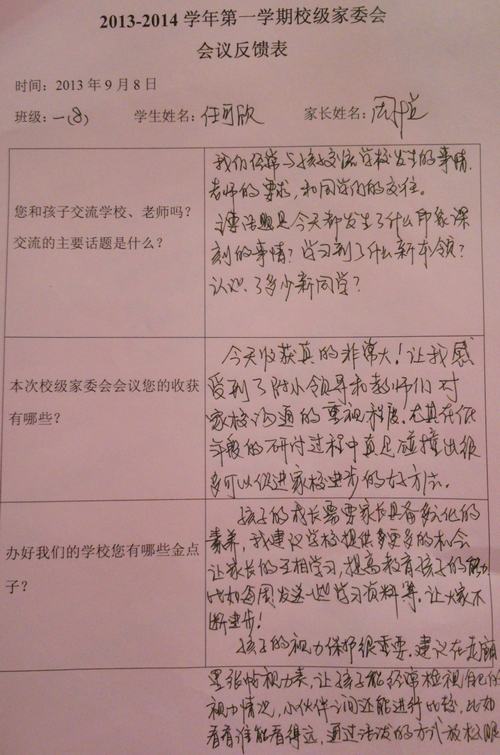 2013-2014 学年第一学期校级家委会
会议反馈表
时间：2013 年 9 月 8 日
班级：一(8) 学生姓名：任可欣 家长姓名：周
您和孩子交流学校、老师吗？
交流的主要话题是什么？
我们经常与孩子交流学校发生的事情.
老师的要求，和同学们的交往。
主要话题是今天都发生了什么印象深
刻的事情？学习到了什么新本领？
认识了多少新同学？
本次校级家委会会议您的收获
有哪些？
今天收获真的非常大！让我感
受到了附小领导和教师们对
家校沟通的重视程度.尤其在低
年级的研讨过程中真是碰撞出很
多可以促进家校进步的好方法。
办好我们的学校您有哪些金点
子？
孩子的成长需要家长具备多元化的
素养，我建议学校提供更多的机会
让家长的互相学习，提高教育孩子的能力
比如每周发送一些学习资料等.让大家不
断进步！
孩子的视力保护很重要.建议在走廊
里张帖视力表，让孩子能经常检视自己的
视力情况，小伙伴之间还能进行比较，比如
看看谁能看得远，通过活泼的方式放松眼